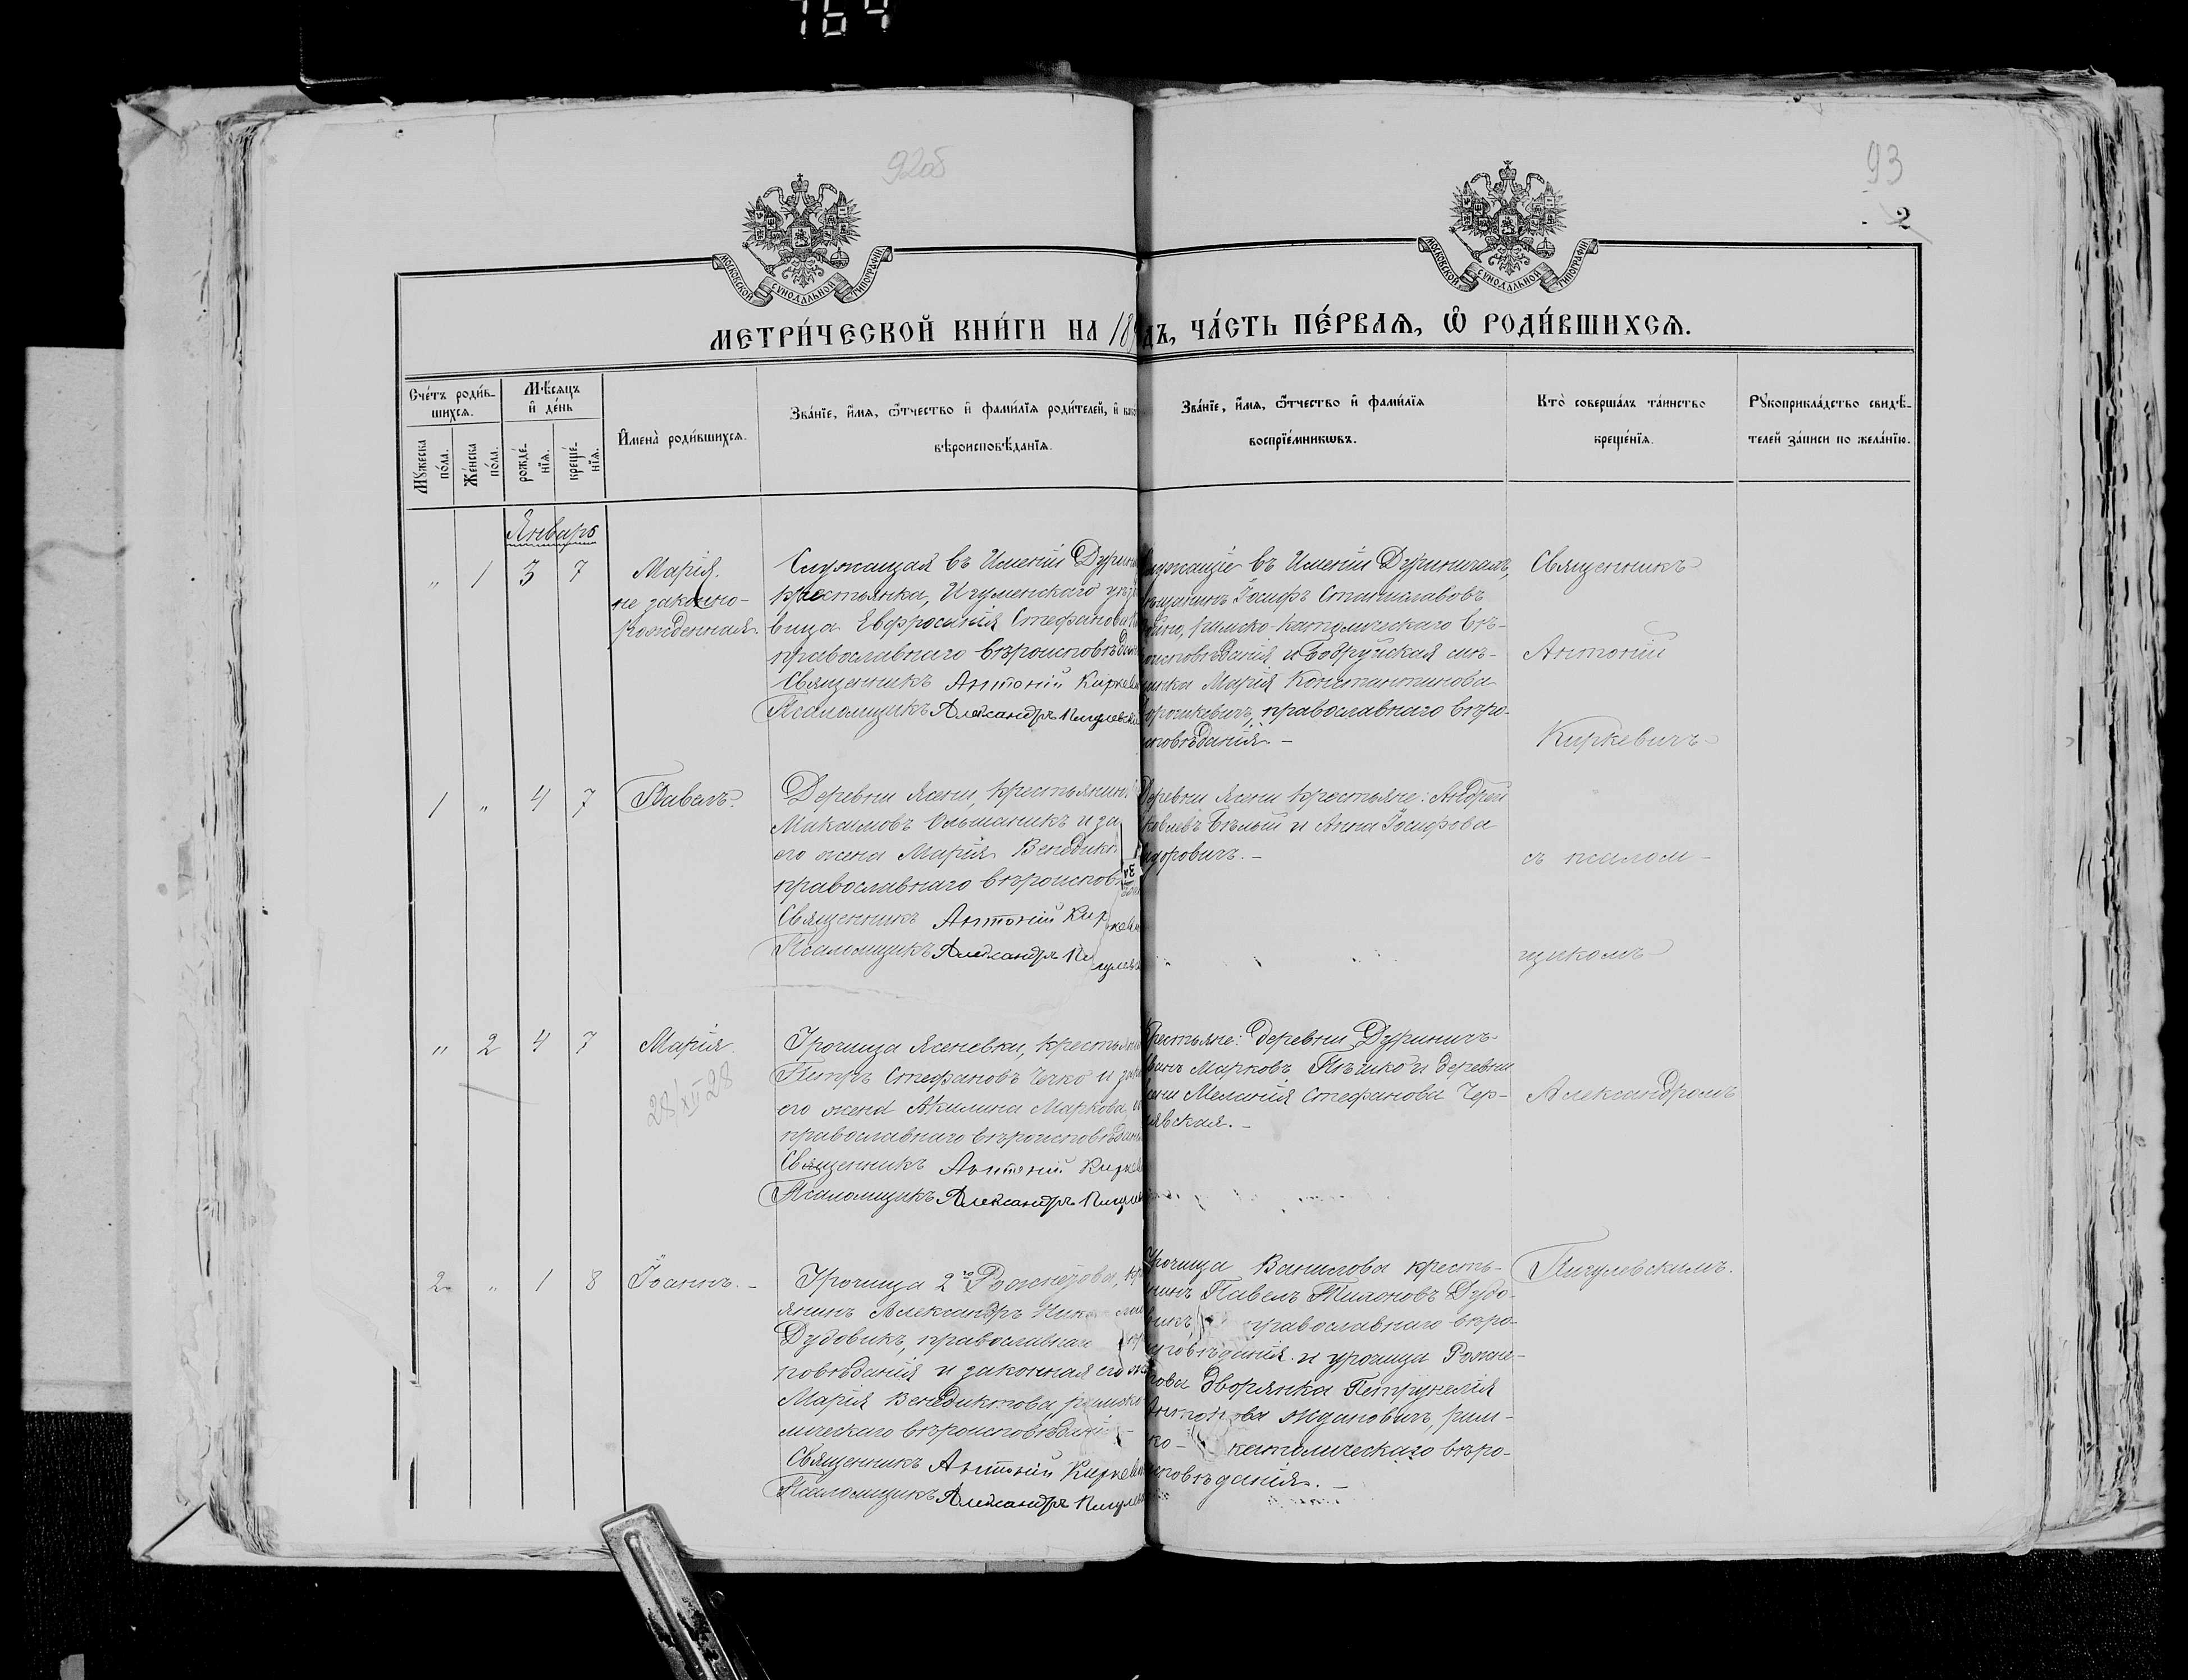 764
92об
93
2
МОСКОВСКОЙ СѴНОДАЛЬНОЙ ТИПОГРАФІИ
МОСКОВСКОЙ СѴНОДАЛЬНОЙ ТИПОГРАФІИ
МЕТРИ́ЧЕСКОЙ КНИ́ГИ НА 18
ДЪ, ЧА́СТЬ ПЕ́РВАѦ, Ѽ РОДИ́ВШИХСѦ.
Сче́тъ роди́в-
шихсѧ.
Мꙋжеска
по́ла.
Же́нска
по́ла.
Мѣ́сѧцъ
и҆ де́нь
рожде́-
нїѧ.
креще́-
нїѧ.
И҆мена̀ роди́вшихсѧ.
Зва́нїе, и҆́мѧ, ѻ҆́тчество и҆ фами́лїѧ роди́телей, и҆
вѣроисповѣ́данїѧ.
Зва́нїе, и҆́мѧ, ѻ҆́тчество и҆ фами́лїѧ
воспрїе́мникѡвъ.
Кто̀ соверша́лъ та́инство
креще́нїѧ.
Рꙋкоприкла́дство свидѣ́-
телей за́писи по жела́нїю.
Январь
" 1 3 7
Марія.
не законно-
рожденная.
Служащая въ Имѣніи Дурин
крестьянка, Игуменскаго уѣз
вица Евфросинія Стефанова
православнаго вѣроисповѣдан
Священникъ Антоній Киркеви
Псаломщикъ Александръ Пигулевскі
служащіе въ Имѣніи Дуриничахъ,
ѣщанинъ Іосифъ Станиславовъ
римско-католическаго вѣ-
оисповѣданія и Бобруйская мѣ-
щанка Марія Константинова
православнаго вѣро-
исповѣданія.-
Священникъ
Антоній
Киркевичъ
1 " 4 7
Павелъ.
Деревни Ясени, крестьянинъ
Максимовъ Ольшаникъ и за
его жена Марія Венедикт
православнаго вѣроисповѣ
Священникъ Антоній Киркеви
Псаломщикъ Александръ Пигулевск
Деревни Ясени крестьяне: Андрей
ковлевъ Бѣлый и Анна Іосифова
идоровичъ.-
съ псалом-
щикомъ
" 2 4 7
Марія.
28/XII 28
Урочища Ясеневки, крестьян
Петръ Стефановъ Чечко и зак
его жена Акилина Маркова,
православнаго вѣроисповѣдан
Священникъ Антоній Киркев
Псаломщикъ Александръ Пигулев
Крестьяне: деревни Дуриничъ
Марковъ и деревни
сени Меланія Стефанова Чер-
нявская.-
Александромъ
2 " 1 8
Іоаннъ.-
Урочища 2го Рожнетова, кр
янинъ Александръ Никола
Дудовикъ, православна
повѣданія и законная его же
Марія Венедиктова, римско
лическаго вѣроисповѣдані
Священникъ Антоній Киркеви
Псаломщикъ Александръ Пигулев
Урочища Вашилова кресть-
нинъ Павелъ Тихоновъ Дудо-
викъ, православнаго вѣро-
исповѣданія и урочища Рожне-
това дворянка Петрунелія
Антонова Ждановичъ, рим-
ко- католическаго вѣро-
исповѣданія.-
Пигулевскимъ.